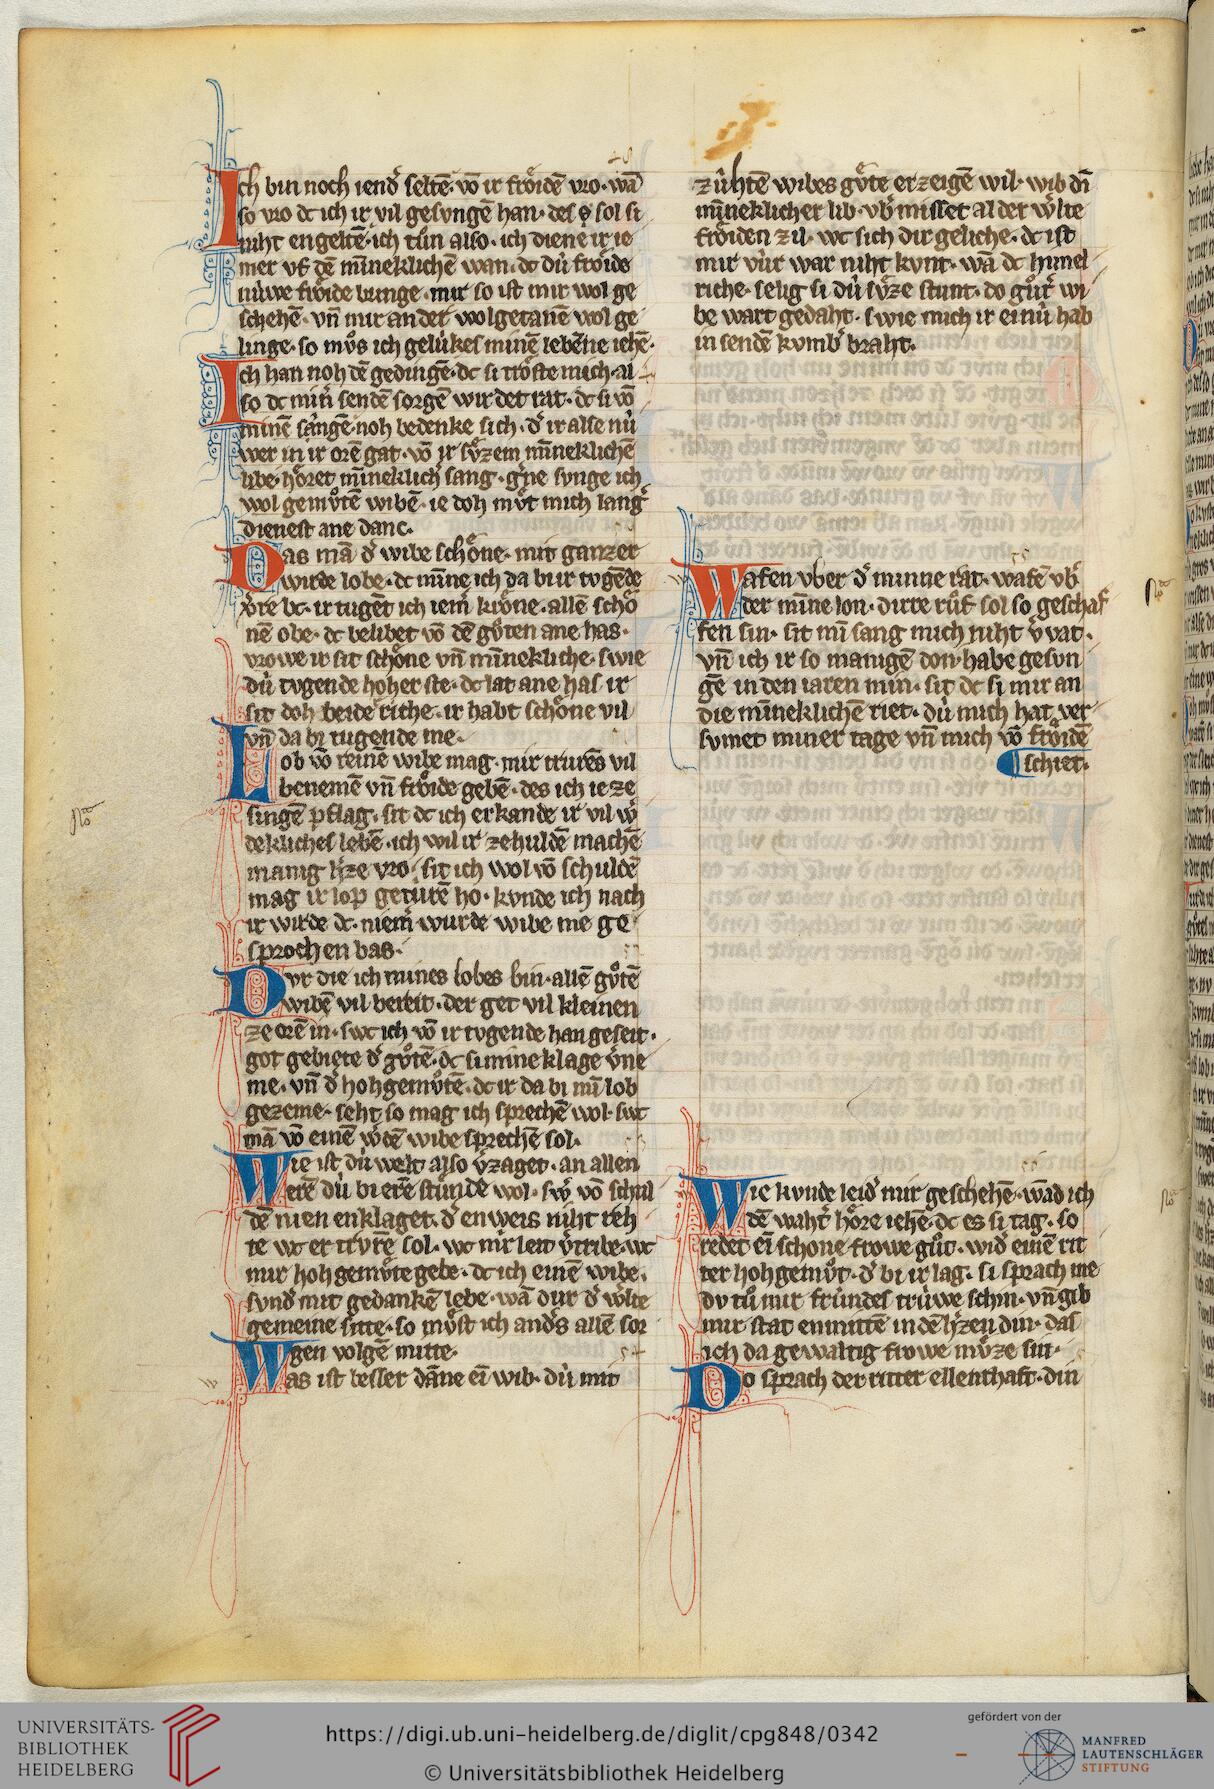 Ich bin noch iend̾ seltē· vō ir froͤidē vro· wā
so vro dc ich ir vil gesvngē han· des sol si
niht engeltē· ich tůn also· ich diene ir ie
mer vf dē mīneklichē wan· dc dù froͤide
nùwe froͤide bringe· mir so ist mir wol ge
schehē· vn̄ mir an der wolgetanē wol ge
linge· so mvͦs ich gelùkes minē lebēne iehē·
Ich han noh dē gedingē· dc si troͤste mich· al
so dc min̄ sendē sorgē wirdet rat· dc si vō
minē sāngē· noh bedenke sich· d̾ ir alse nù
wer in ir orē gat· vō ir svͤzem mīneklichē
libe· hoͤret mīneklich̾ sang· g̾ne singe ich
wol gemvͦtē wibē· ie doh mvͤt mich lang̾
dienest ane danc·
Das mā d̾ wibe schoͤne· mit ganzer
wirde lobe· dc mīne ich da bi ir tvgēde
v̾re bc· ir tugēt ich iem̾ kroͤne· allē schoͤ
nē obe· dc belibet vō dē gvͦten ane has·
vrowe ir sit schoͤne vn̄ mīnekliche· swie
dù tvgende hoher ste· dc lat ane has ir
sit doh beide riche· ir habt schoͤne vil
vn̄ da bi tugende me·
Lob vō reinē wibe mag· mir trurēs vil
benemē vn̄ froͤide gebē· des ich ie ze
singē pflag· sit dc ich erkande ir vil w̾
deklichesˢ lebē· ich wil ir ze huldē machē
manig h̾ze vro· sit ich wol vō schuldē
mag ir lop getùrē ho· kvnde ich nach
ir wirde dc· niem̾ wurde wibe me ge
sprochen bas·
Dvr die ich mines lobes bin· allē gvͦtē
wibē vil bereit· der get vil kleinen
ze orē in· swc ich vō ir tvgende han geseit·
got gebiete d̾ gvͦtē· dc si mine klage v̾ne
me· vn̄ d̾ hohgemvͦtē· dc ir da bi mī lob
gezeme· seht so mag ich sprechē wol· swc
mā vō einē w̾dē wibe sprechē sol·
Wie ist dù welt also v̾zaget· an allen
erē dù bi erē stùnde wol· sw̾ vō schul
dē nien enklaget· d̾ enweis niht reh
te wc er trvrē sol· wc mir leit v̾tribe· wc
mir hohgemvͤte gebe· dc ich einē wibe·
svnd̾ mit gedankē lebe· wā dur d̾ w̾lte
gemeine sitte· so mvͤst ich and̾s allē sor
gen volgē mitte·
Was ist besser dāne eī wib· dù mit
zùhtē wibes gvͤte erzeigē wil· wib dī
mīneklicher lib· vb̾misset al der w̾lte
froͤiden zil· wc sich dir geliche· dc ist
mir vùr war niht kvnt· wā dc himel
riche· selig si dù svͤze stunt· do gvͦt̾ wi
be wart gedaht· swie mich ir einù hab
in sendē kvmb̾ braht·
Wafen vber d̾ minne rat· wafē vb̾
der mīne lon· dirre rvͦf sol so geschaf
fen sin· sit mī sang mich niht v̾vat·
vn̄ ich ir so manigē don· habe gesvn
gē in den iaren min· sit dc si mir an
die mīneklichē riet· dù mich hat ver
svmet miner tage vn̄ mich vō froͤidē
schiet·
Wie kvnde leid̾ mir geschehē· wād ich
dē waht̾ hoͤre iehē· dc es si tag· so
redet eī schone frowe gvͦt· wid̾ einē rit
ter hohgemvͦt· d̾ bi ir lag· si sprach me
dv tvͦ mir frùndes trùwe schin· vn̄ gib
mir stat enmittē in dē h̾zen din· das
ich da gewaltig frowe mvͤze sin·
Do sprach der ritter ellenthaft· din
UNIVERSITÄTS-
BIBLIOTHEK
HEIDELBERG
https://digi.ub.uni-heidelberg.de/diglit/cpg848/0342
© Universitätsbibliothek Heidelberg
gefördert von der
MANFRED
LAUTENSCHLÄGER
STIFTUNG